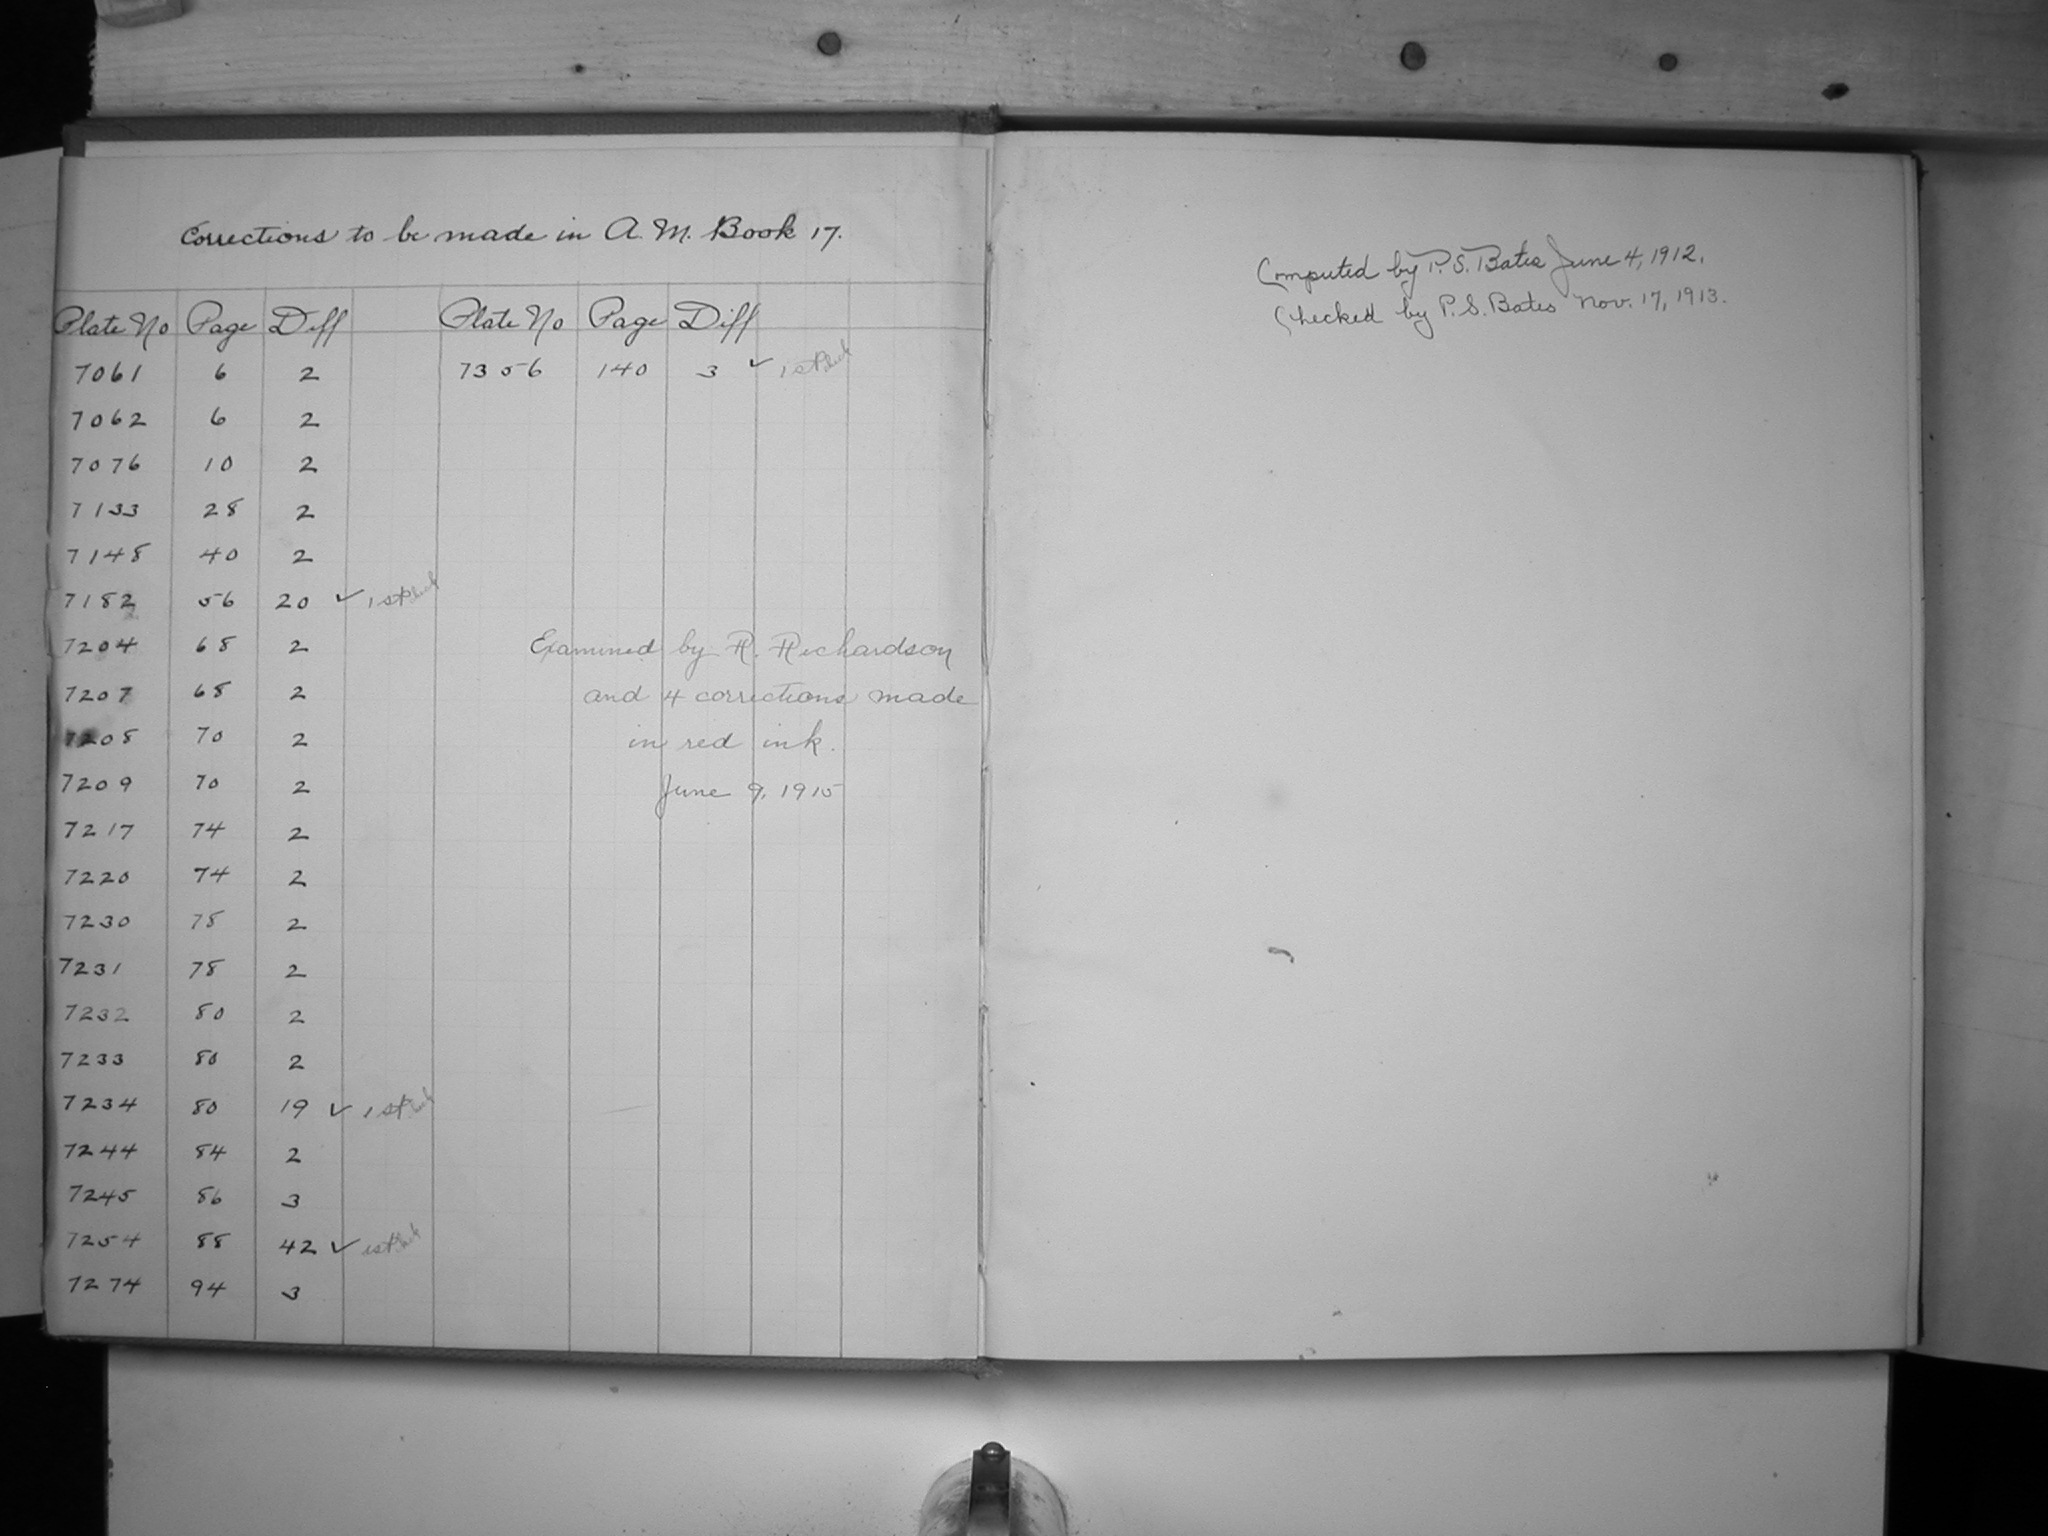 Corrections to be made in A. M. Book 17.
Plate No Page Diff Plate No Page Diff
7061 6 2 7356 140 3 ✓ 1st check
7062 6 2
7076 10 2
7133 28 2
7148 40 2
7182 56 20 ✓ 1st check
7204 68 2
7207 68 2
7208 70 2
7209 70 2
7217 74 2
7220 74 2
7230 78 2
7231 78 2
7232 80 2
7233 80 2
7234 80 19 ✓ 1st check
7244 84 2
7245 86 3
7254 88 42 ✓ 1st check
7274 94 3
Examined by R. Richardson
and 4 corrections made
in red ink.
June 9, 1915
Computed by P. S. Bates June 4, 1912.
Checked by P. S. Bates Nov. 17, 1913.